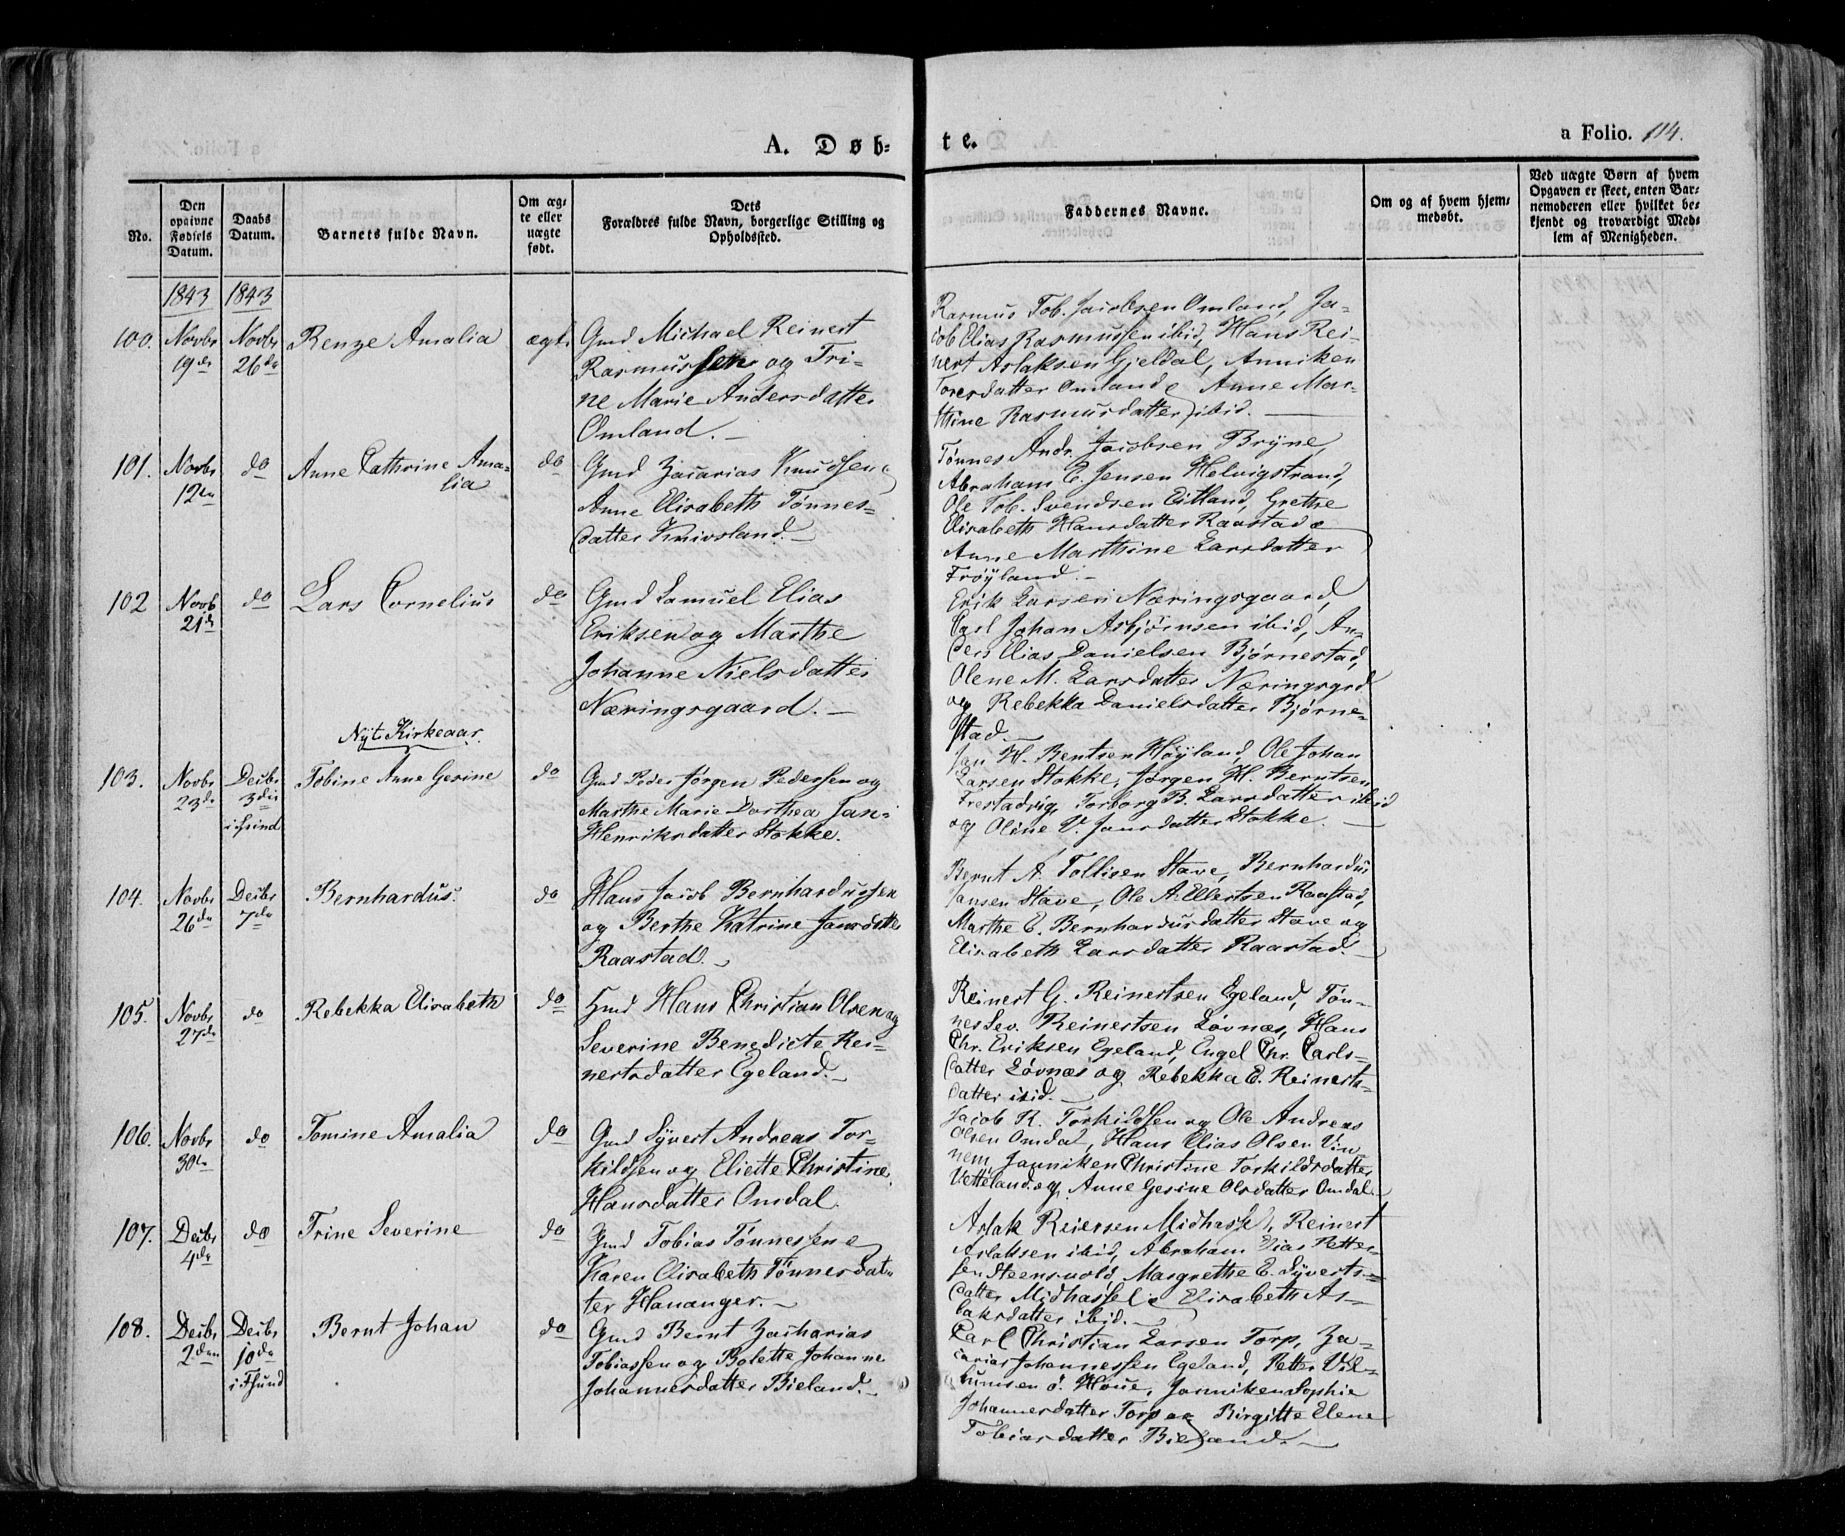 A. Døb-
te.
a Folio. 114.
No.
Den opgivne Fødsels Datum.
Daabs Datum.
Barnets fulde Navn.
Om ægte eller uægte født.
Dets
Forældres fulde Navn, borgerlige Stilling og
Opholdssted.
Faddernes Navne.
Om og af hvem hjem-
medøbt.
Ved uægte Børn af hvem
Opgaven er skeet, enten Bar-
nemoderen eller hvilket be-
kjendt og troværdigt Med-
lem af Menigheden.
1843 1843
100. Novbr 19de Novbr 26de Renze Amalia ægt.
Gmd Michael Reinert
Rasmussen og Tri-
ne Marie Andersdatter
Omland.
Rasmus Tob. Jacobsen Omland, Ja-
cob Elias Rasmussen ibid, Hans Rei-
nert Aslaksen Gjeldal, Anniken
Toresdatter Omland & Anne Mar-
thine Rasmusdatter ibid.
101. Novbr 12te do Anne Cathrine Ama-
lia do
Gmd Zacarias Knudsen &
Anne Elisabeth Tønnes-
datter Knivsland.
Tønnes Andr. Jacobsen Bryne,
Abraham C. Jensen Helvigstrand,
Ole Tob. Svendsen Eitland, Grethe
Elisabeth Hansdatter Raastad &
Anne Marthine Larsdatter
Frøyland.
102 Novb 21de do Lars Cornelius do
Gmd Samuel Elias
Eriksen og Marthe
Johanne Nielsdatter
Næringsgaard.
Erik Larsen Næringsgaard,
Carl Johan Asbjørnsen ibid, An-
ders Elias Danielsen Bjørnestad,
Olene M. Larsdatter Næringsgrd
og Rebekka Danielsdatter Bjørne-
stad.
Nyt Kirkeaar.
103. Novbr 23de Decbr 3die
Tobine Anne Gesine do
Gmd Peder Jørgen Pedersen og
Marthe Marie Dorthea Jan-
Henriksdatter Stokke.
Jan H. Bentsen Høyland, Ole Johan
Larsen Stokke, Jørgen H. Berntsen
Torborg B. Larsdatter ibid
og Oline V. Jansdatter Stokke.
104. Novbr 26de Decbr 7de Bernhardus. do
Hans Jacob Bernhardussen
og Berthe Katrine Jansdatter
Raastad.
Bernt A. Tollisen Stave, Bernhardus
Jansen Stave, Ole A. Ellertsen Raastad,
Marthe E. Bernhardusdatter Stave og
Elisabeth Larsdatter Raastad.
105. Novbr 27de do Rebekka Elisabeth do
Hans Christian Olsen og
Severine Benedicte Rei-
nertsdatter Egeland.
Reinert G. Reinertsen Egeland, Tøn-
nes Sev. Reinertsen Løvnæs, Hans
Chr. Eriksen Egeland, Engel Chr. Carls-
datter Løvnæs og Rebekka E. Reinerts-
datter ibid.
106. Novbr 30te do Tomine Amalia do
Gmd Syvert Andreas Tor-
kildsen og Eliette Christine
Hansdatter Omdal.
Jacob R. Torkildsen og Ole Andreas
Olsen Omdal, Hans Elias Olsen Vin-
nem, Janniken Christine Torkildsdatter
Vetteland og Anne Gesine Olsdatter Omdal.
107. Decbr 4de do Trine Severine do
Gmd Tobias Tønnessen &
Karen Elisabeth Tønnesdat-
ter Hananger.
Aslak Reiersen Midhassel, Reinert
Aslaksen ibid, Abraham Elias Petter-
sen Steensvold, Margrethe E. Syverts-
datter Midhassel & Elisabeth As-
laksdatter ibid.
108. Decbr 2den Decbr 10de Bernt Johan do
Gmd Bernt Zacharias
Tobiassen og Bolette Johanne
Johannesdatter Bieland.
Carl Christian Larsen Torp, Za-
carias Johannessen Egeland, Petter Vil-
Houe, Janniken Sophie
Johannesdatter Torp og Birgitte Elene
Tobiasdatter Bieland.